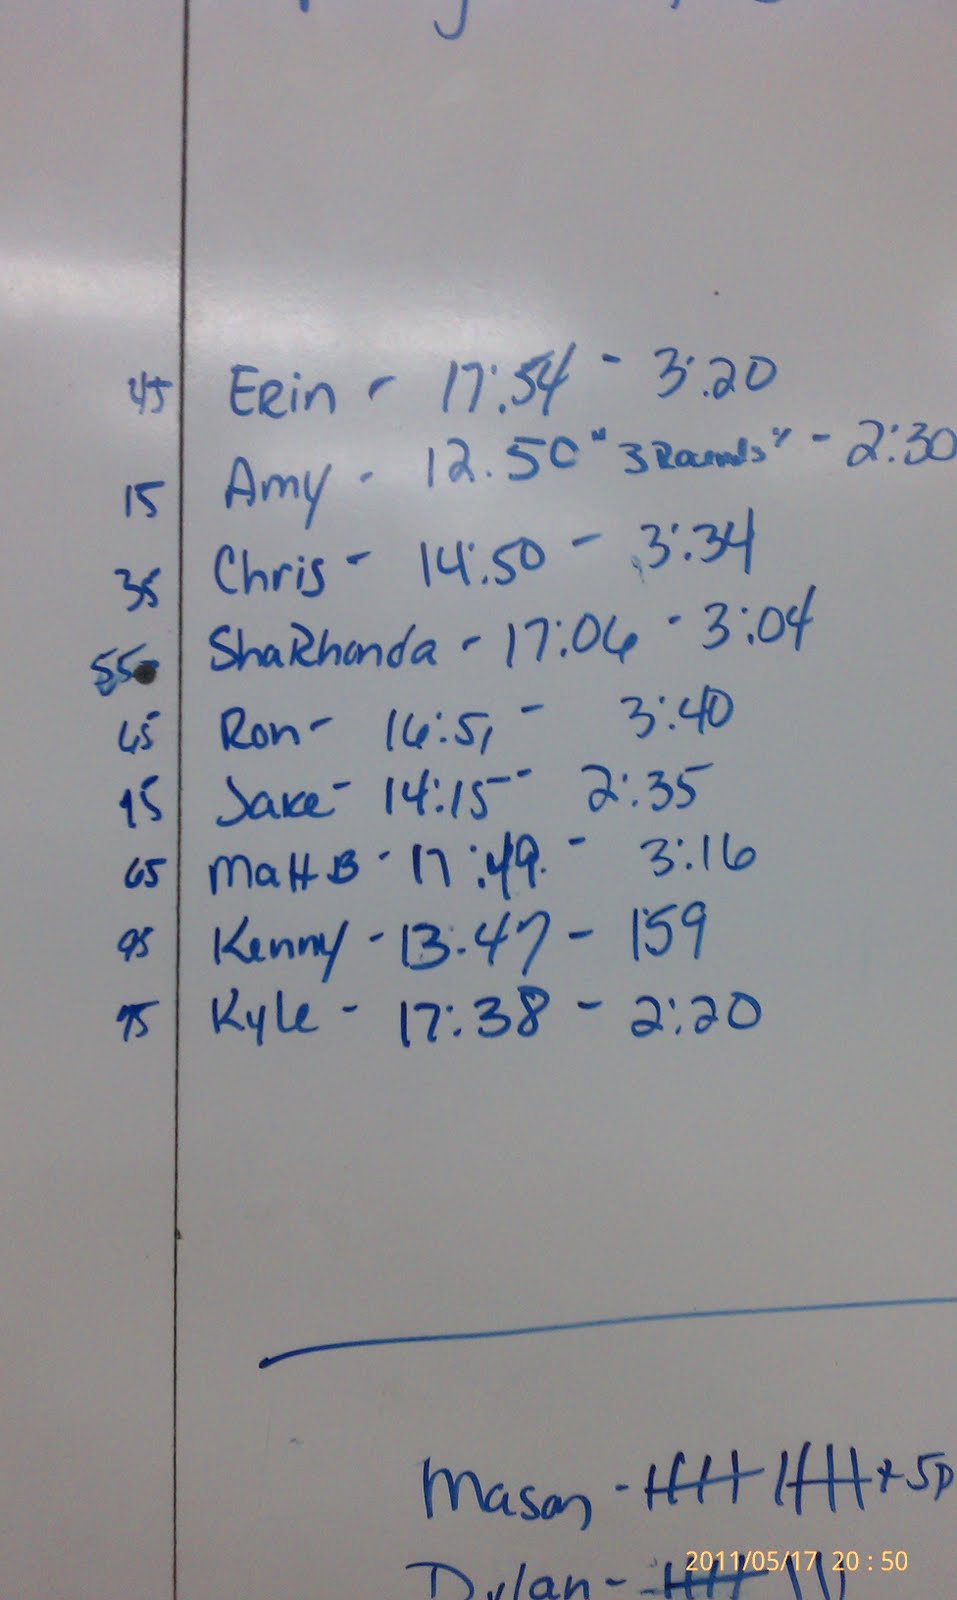 45 Erin - 17:54 - 3:20
15 Amy - 12.50 "3 Rounds" - 2:30
35 Chris - 14:50 - 3:34
55 ShaRhonda - 17:06 - 3:04
65 Ron - 16:51 - 3:40
95 Jake - 14:15 - 2:35
65 Matt B - 17:49 - 3:16
95 Kenny - 13:47 - 1:59
75 Kyle - 17:38 - 2:20
Mason - 卌 卌 + 5p
Dylan - 卌 |||
2011/05/17 20:50